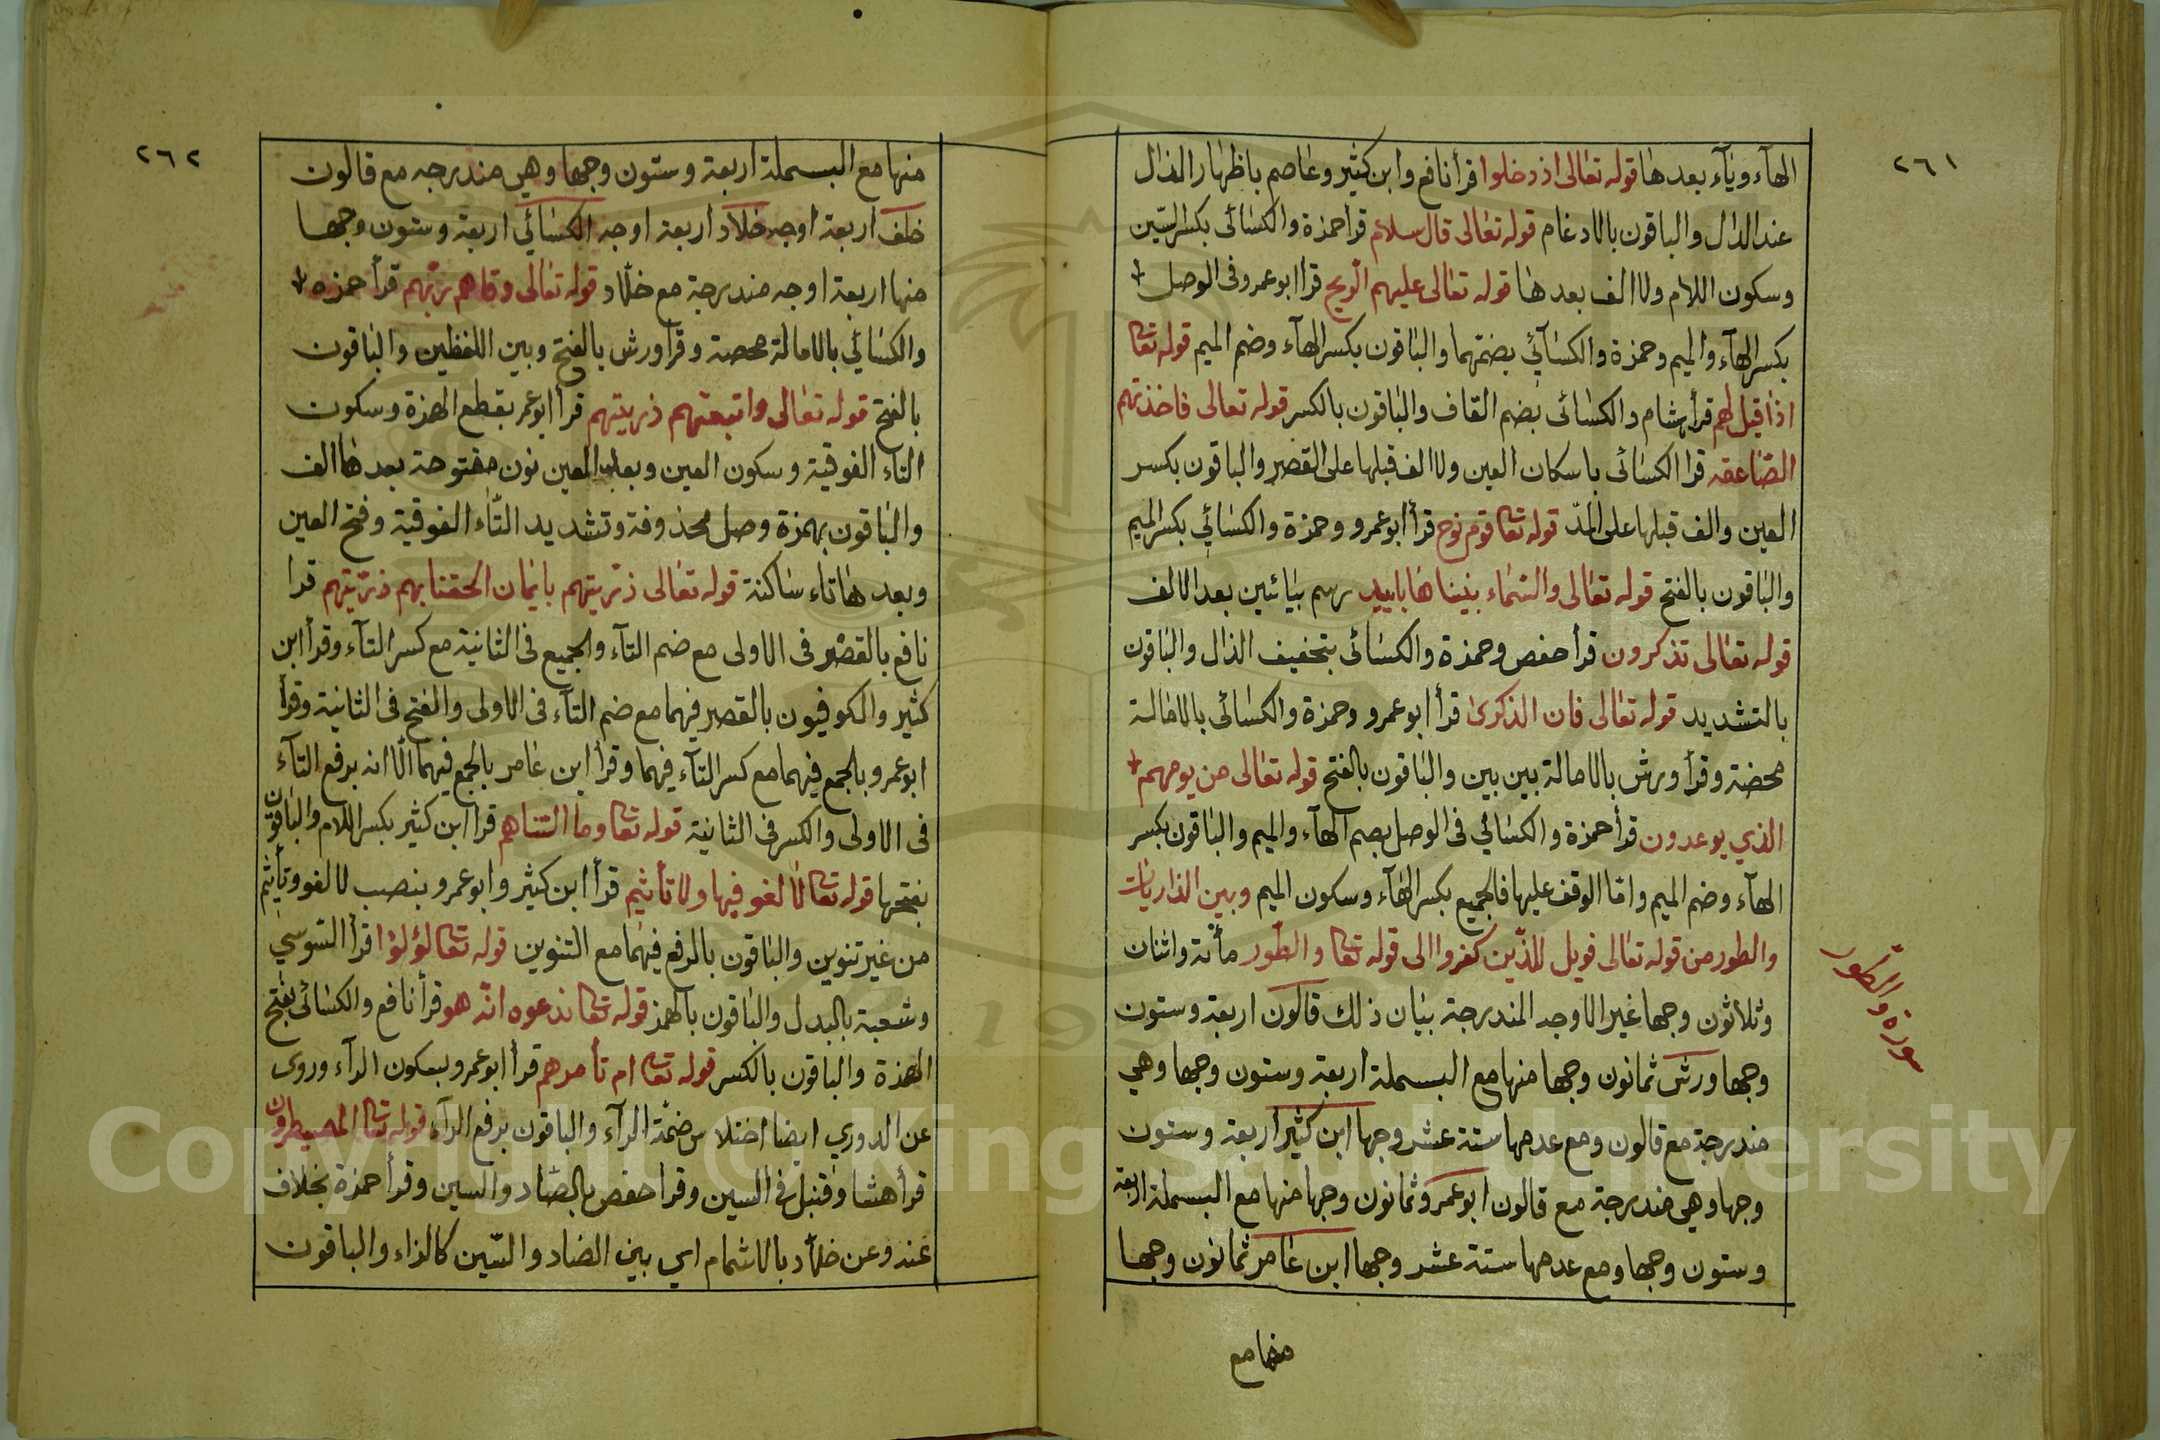 ٢٦١
الهآء ويآء بعدها قوله تعالى اذ دخلوا قرأ نافع وابن كثير وعاصم باظهار الذال
عند الدال والباقون بالادغام قوله تعالى قال سلام قرا حمزة والكسائى بكسر السّين
وسكون اللام ولا الف بعدها قوله تعالى عليهم الريح قرا ابو عمرو فى الوصل
بكسر الهآء والميم وحمزة والكسآئي بضمّهما والباقون بكسر الهآء وضم الميم قوله تعا
اذا قيل لهم قرأ هشام والكسائى بضم القاف والباقون بالكسر قوله تعالى فاخذتهم
الصّاعقه قرا الكسائى باسكان العين ولا الف قبلها على القصر والباقون بكسر
العين والف قبلها على المدّ قوله تعا قوم نوح قرأ ابو عمرو وحمزة والكسائي بكسر الميم
والباقون بالفتح قوله تعالى والسّماء بنيناها باييد رسم بيائين بعد الالف
قوله تعالى تذكرون قرأ حفص وحمزة والكسائى بتخفيف الذال والباقون
بالتشديد قوله تعالى فان الذكرى قرأ ابو عمرو وحمزة والكسائى بالامالة
محضة وقرأ ورش بالامالة بين بين والباقون بالفتح قوله تعالى من يومهم
الذي يوعدون قرأ حمزة والكسائي فى الوصل بضم الهآء والميم والباقون بكسر
الهآء وضم الميم وامّا الوقف عليها فالجميع بكسر الهآء وسكون الميم وبين الذاريات
والطور من قوله تعالى فويل للذين كفروا الى قوله تعا والطّور مأئة واثنان
سورة والطور
وثلاثون وجها غير الاوجه المندرجة بيان ذلك قالون اربعة وستون
وجها ورش ثمانون وجها منها مع البسملة اربعة وستون وجها وهي
مندرجة مع قالون ومع عدمها ستة عشر وجها ابن كثير اربعة وستون
وجها وهي مندرجة مع قالون ابو عمرو ثمانون وجها منها مع البسملة اربعة
وستون وجها ومع عدمها ستة عشر وجها ابن عامر ثمانون وجها
منها مع
٢٦٢
منها مع البسملة اربعة وستون وجها وهي مندرجه مع قالون
خلف اربعة اوجه خلاد اربعة اوجه الكسائي اربعة وستون وجها
منها اربعة اوجه مندرجة مع خلاد قوله تعالى وقاهم ربّهم قرأ حمزه
والكسائي بالامالة محضة وقرأ ورش بالفتح وبين اللفظين والباقون
بالفتح قوله تعالى واتبعتهم ذريتهم قرأ ابو عمر بقطع الهمزة وسكون
التاء الفوقية وسكون العين وبعد العين نون مفتوحة بعدها الف
والباقون بهمزة وصل محذوفة وتشديد التّاء الفوقية وفتح العين
وبعدها تاء ساكنة قوله تعالى ذريتهم بايمان الحقنا بهم ذريّتهم قرا
نافع بالقصر فى الاولى مع ضم التآء والجميع فى الثانية مع كسر التآء وقرأ ابن
كثير والكوفيون بالقصر فيهما مع ضم التآء فى الاولى والفتح فى الثانية وقرأ
ابو عمرو بالجمع فيهما مع كسر التآء فيهما وقرأ ابن عامر بالجمع فيهما الّا انه برفع التآء
فى الاولى والكسر فى الثانية قوله تعا وما التناهم قرأ ابن كثير بكسر اللام والباقون
بفتحها قوله تعا لا لغو فيها ولا تأثيم قرأ ابن كثير وابو عمرو بنصب لا لغو وتأثيم
من غير تنوين والباقون بالرفع فيهما مع التنوين قوله تعا لؤلؤا قرأ السّوسي
وشعبة بالبدل والباقون بالهمز قوله تعا ندعوه انّه هو قرأ نافع والكسائى بفتح
الهمزة والباقون بالكسر قوله تعا ام تأمرهم قرأ ابو عمرو بسكون الرآء وروى
عن الدوري ايضا اختلاس ضمّة الرآء والباقون برفع الرآء قوله تعا المصيطرون
قرأ هشا وقنبل فى السين وقرا حفص بالصّاد والسين وقرأ حمزة بخلاف
عند وعن خلاد بالاشمام اي بين الصاد والسّين كالزاء والباقون
Copyright © King Saud University